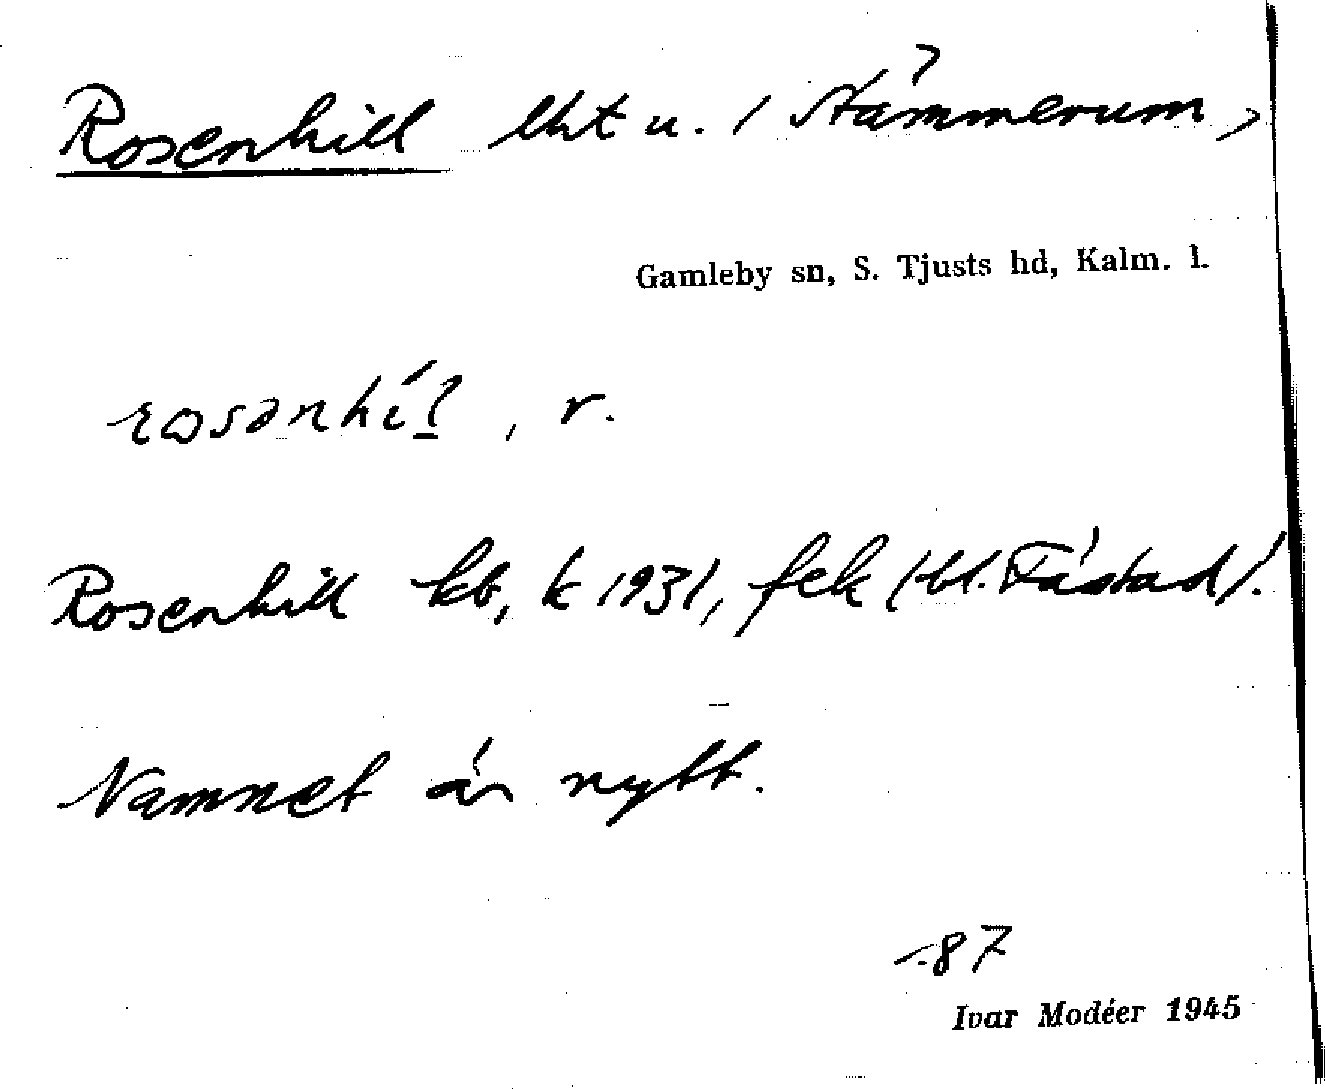 Rosenhill lht u. 1 Stämmerum,
Gamleby sn, S. Tjusts hd, Kalm. l.
rosənhíl, r.
Rosenhill kb, k 1931, fek (til.
Namnet är nytt.
87
Ivar Modéer 1945